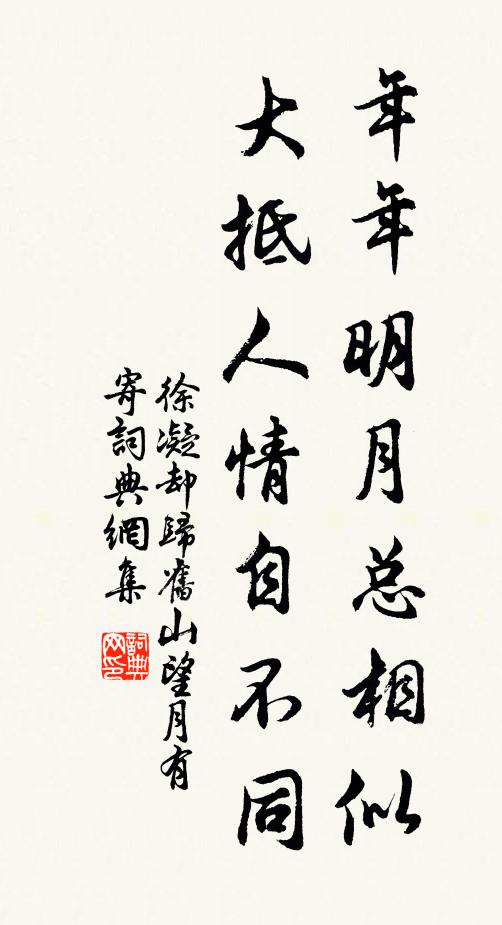 年年明月总相似
大抵人情自不同
徐凝却歸舊山望月有
寄詞典網集
詞典网印